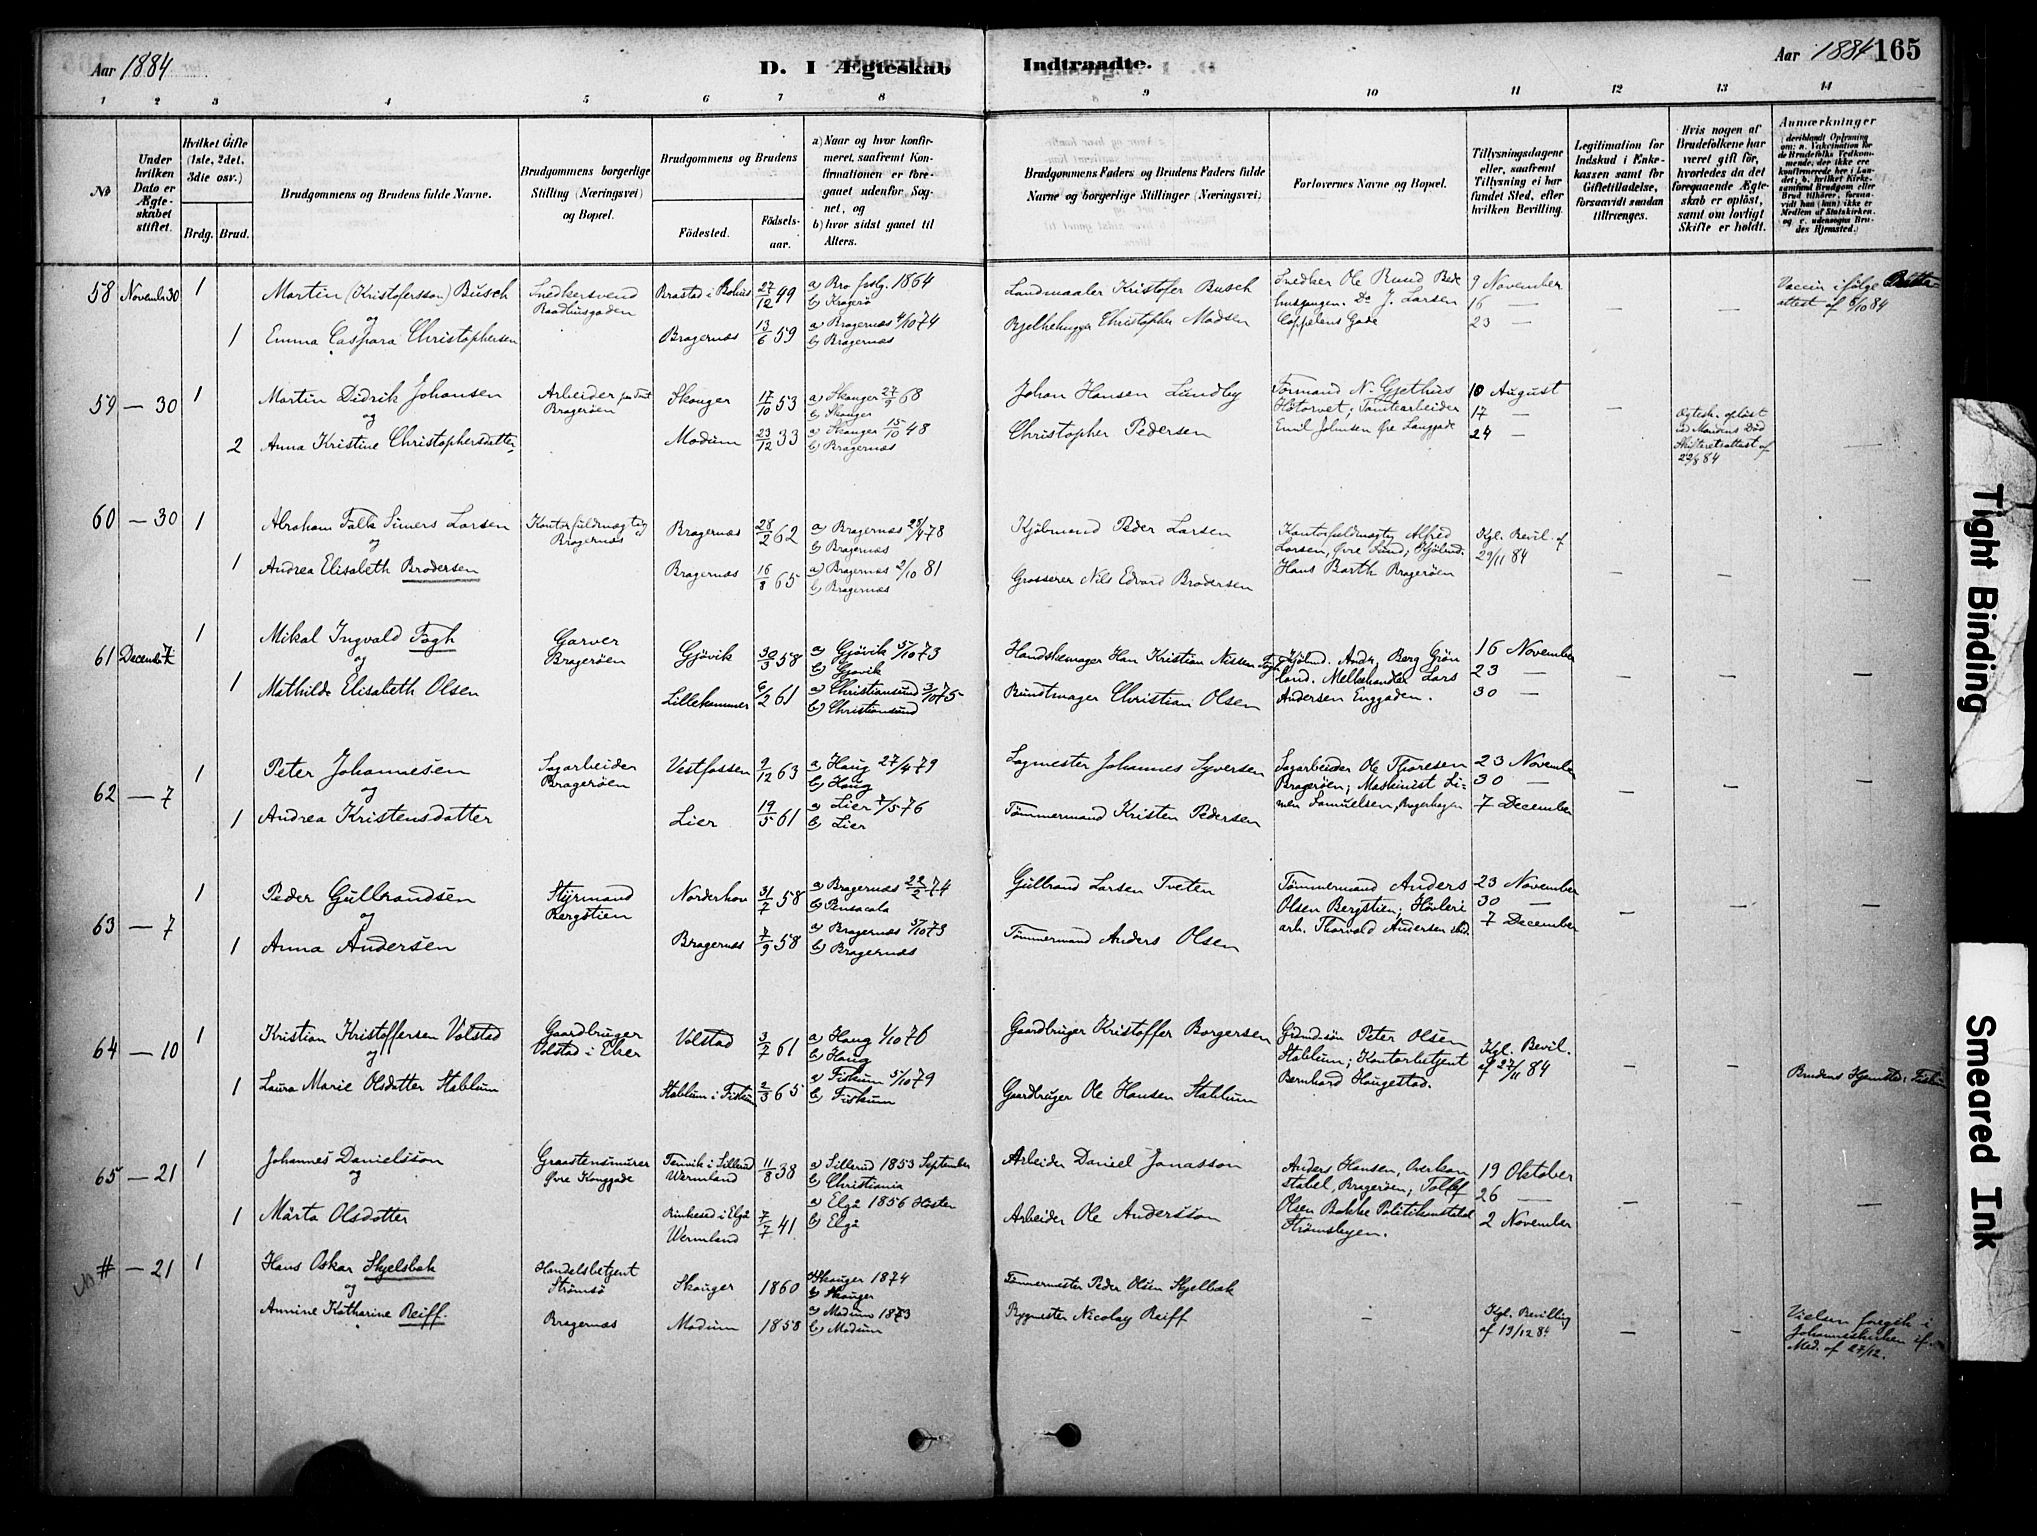 Aar 1884
D. I Ægteskab Indtraadte.
Aar 1884 165
1 2 3 4 5 6 7 8 9 10 11 12 13 14
No
Under hvilken Dato er Ægteskabet stiftet.
Hvilket Gifte (1ste, 2det, 3die osv.)
Brdg. Brud.
Brudgommens og Brudens fulde Navne.
Brudgommens borgerlige Stilling (Næringsvei) og Bopæl.
Brudgommens og Brudens
Fødested. Fødsels-aar.
a) Naar og hvor konfirmeret, saafremt Konfirmationen er foregaaet udenfor Sognet, og
b) hvor sidst gaaet til Alters.
Brudgommens Faders og Brudens Faders fulde Navne og borgerlige Stillinger (Næringsvei)
Forlovernes Navne og Bopæl.
Tillysningsdagene eller, saafremt Tillysning ei har fundet Sted, efter hvilken Bevilling.
Legitimation for Indskud i Enkekassen samt for Giftetilladelse, forsaavidt saadan tiltrænges.
Hvis nogen af Brudefolkene har været gift før, hvorledes da det foregaaende Ægteskab er opløst, samt om lovligt Skifte er holdt.
Anmærkninger
58 Novembr 30 1 Martin (Kristofersson) Busch Snedkersvend Raadhusgaden Brastad i Bohus 27/12 49 a) Bro 1864 b) Kragerø Landmaaler Kristofer Busch Snedker Ole Do J. Larsen Cappelens Gade 9 November 16 — 23 — — — Vaccin ifølge attest af 6/10 84
og
1 Emma Caspara Christophersen Bragernæs 13/6 59 a) Bragernæs 4/10 74 b) Bragernæs Bjelkehugger Christopher Madsen
59 — 30 1 Martin Didrik Johansen Arbeider Bragerøen Skouger 17/10 53 a) Skouger 27/9 68 b) Skouger Johan Hansen Lundby Formand N. Gjethus Høtorvet; Tomtearbeider Emil Johnsen Øre Langgade 10 August 17 — 24 — — Ægtesk. opløst ved Mandens Død Skifteretsattest af 22/8 84 —
og
2 Anna Kristine Christophersdatter Modum 23/12 33 a) Skouger 15/10 48 b) Bragernæs Christopher Pedersen
60 — 30 1 Abraham Falk Simers Larsen Kontorfuldmægtig Bragernæs Bragernæs 28/2 62 a) Bragernæs 28/4 78 b) Bragernæs Kjøbmand Peder Larsen Kontorfuldmægtig Alfred Larsen, Øvre Sund; Kjøbmd. Hans Barth Bragerøen Kgl. Bevil. af 29/11 84 — — —
og
1 Andrea Elisabeth Brodersen Bragernæs 16/8 65 a) Bragernæs 2/10 81 b) Bragernæs Grosserer Nils Edvard Brodersen
61 Decembr 7 1 Mikal Ingvald Fogh Garver Bragerøen Gjøvik 30/3 58 a) Gjøvik 5/10 73 b) Gjøvik Handskemager Han Kristian Nissen Fogh Kjøbmd. Andr. Berg Grønland. Melkehandler Lars Andersen Enggaden. 16 November 23 — 30 — — — —
og
1 Mathilde Elisabeth Olsen Lillehammer 6/2 61 a) Christiansund 3/10 75 b) Christiansund Buntmager Christian Olsen
62 — 7 1 Peter Johannesen Sagarbeider Bragerøen Vestfossen 9/12 63 a) Haug 27/4 79 b) Haug Sagmester Johannes Syversen Sagarbeider Ole Thoresen Bragerøen; Maskinist Linen Samuelsen, Bragerhagen 23 November 30 — 7 December — — —
og
1 Andrea Kristensdatter Lier 19/5 61 a) Lier 7/5 76 b) Lier Tømmermand Kristen Pedersen
63 — 7 1 Peder Gulbrandsen Styrmand Bergstien Norderhov 31/7 58 a) Bragernæs 22/2 74 b) Pensacola Gulbrand Larsen Tveten Tømmermand Anders Olsen Bergstien; Høvleriarb. Thorvald Andersen ibid. 23 November 30 — 7 December — — —
og
1 Anna Andersen Bragernæs 7/9 58 a) Bragernæs 5/10 73 b) Bragernæs Tømmermand Anders Olsen
64 — 10 1 Kristian Kristoffersen Volstad Gaardbruger Volstad i Eker Volstad 3/7 61 a) Haug 1/10 76 b) Haug Gaardbruger Kristoffer Borgersen Grundsøn Peter Olsen Stablum; Kontorbetjent Bernhard Haugestad. Kgl. Bevil. af 27/11 84 — — Brudens Hjemsted: Fiskum
og
1 Laura Marie Olsdatter Stablum Stablum i Fiskum 2/3 65 a) Fiskum 5/10 79 b) Fiskum Gaardbruger Ole Hansen Stablum
65 — 21 1 Johannes Danielsson Graastensmurer Øvre Konggade Tenvik i Sillerud Wermland 11/8 38 a) Sillerud 1853 September b) Christiania Arbeider Daniel Jonasson Anders Hansen, Overkonstabel, Bragerøen; Tollef Olsen Bakke Politikonstabel Strømsbyen. 19 Oktober 26 — 2 November — — —
og
1 Märta Olsdotter Rinkesed i Elgå Wermland 7/7 41 a) Elgå 1856 Høsten b) Elgå Arbeider Ole Andersson
# — 21 1 Hans Oskar Skjelsbæk Handelsbetjent Strømsø Skouger 1860 a) Skouger 1874 b) Skouger Tømmermester Peder Olsen Skjelbæk
og
Annine Katharine Reiff. Bragernæs Modum 1858 a) Modum 1873 b) Modum Bygmester Nicolay Reiff — Kgl. Bevilling af 19/12 84 — — Vielsen foregik i Johanneskirken if. Med. af 27/12.
Tight Binding
Smeared Ink